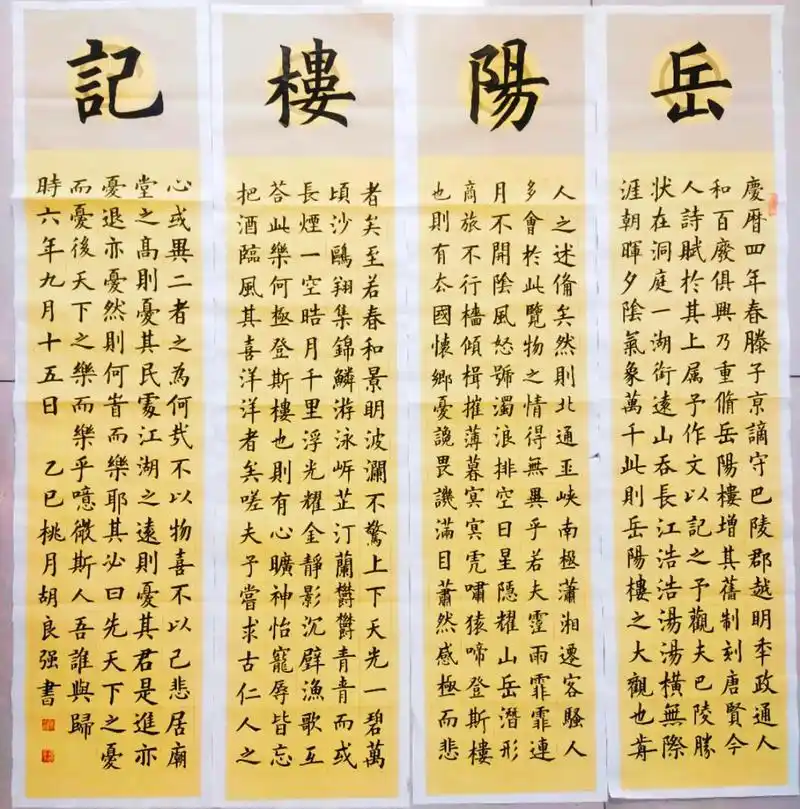 岳陽樓記
慶暦四年春滕子京謫守巴陵郡越明秊政通人
和百廢俱興乃重脩岳陽樓增其舊制刻唐賢今
人詩賦於其上属予作文以記之予觀夫巴陵勝
狀在洞庭一湖銜遠山吞長江浩浩湯湯橫無際
涯朝暉夕陰氣象萬千此則岳陽樓之大觀也歬
人之述俻矣然則北通巫峽南極瀟湘遷客騷人
多會於此覽物之情得無異乎若夫霪雨霏霏連
月不開陰風怒號濁浪排空日星隱耀山岳潛形
商旅不行檣傾楫摧薄暮冥冥虎嘯猿啼登斯樓
也則有去國懷鄉憂讒畏譏滿目蕭然感極而悲
者矣至若春和景明波瀾不驚上下天光一碧萬
頃沙鷗翔集錦鱗游泳岸芷汀蘭鬱鬱青青而或
長煙一空皓月千里浮光耀金靜影沉璧漁歌互
荅此樂何極登斯樓也則有心曠神怡寵辱皆忘
把酒臨風其喜洋洋者矣嗟夫予嘗求古仁人之
心或異二者之為何哉不以物喜不以己悲居廟
堂之高則憂其民處江湖之遠則憂其君是進亦
憂退亦憂然則何旹而樂耶其必曰先天下之憂
而憂後天下之樂而樂乎噫微斯人吾誰與歸
時六年九月十五日 乙巳桃月胡良强書